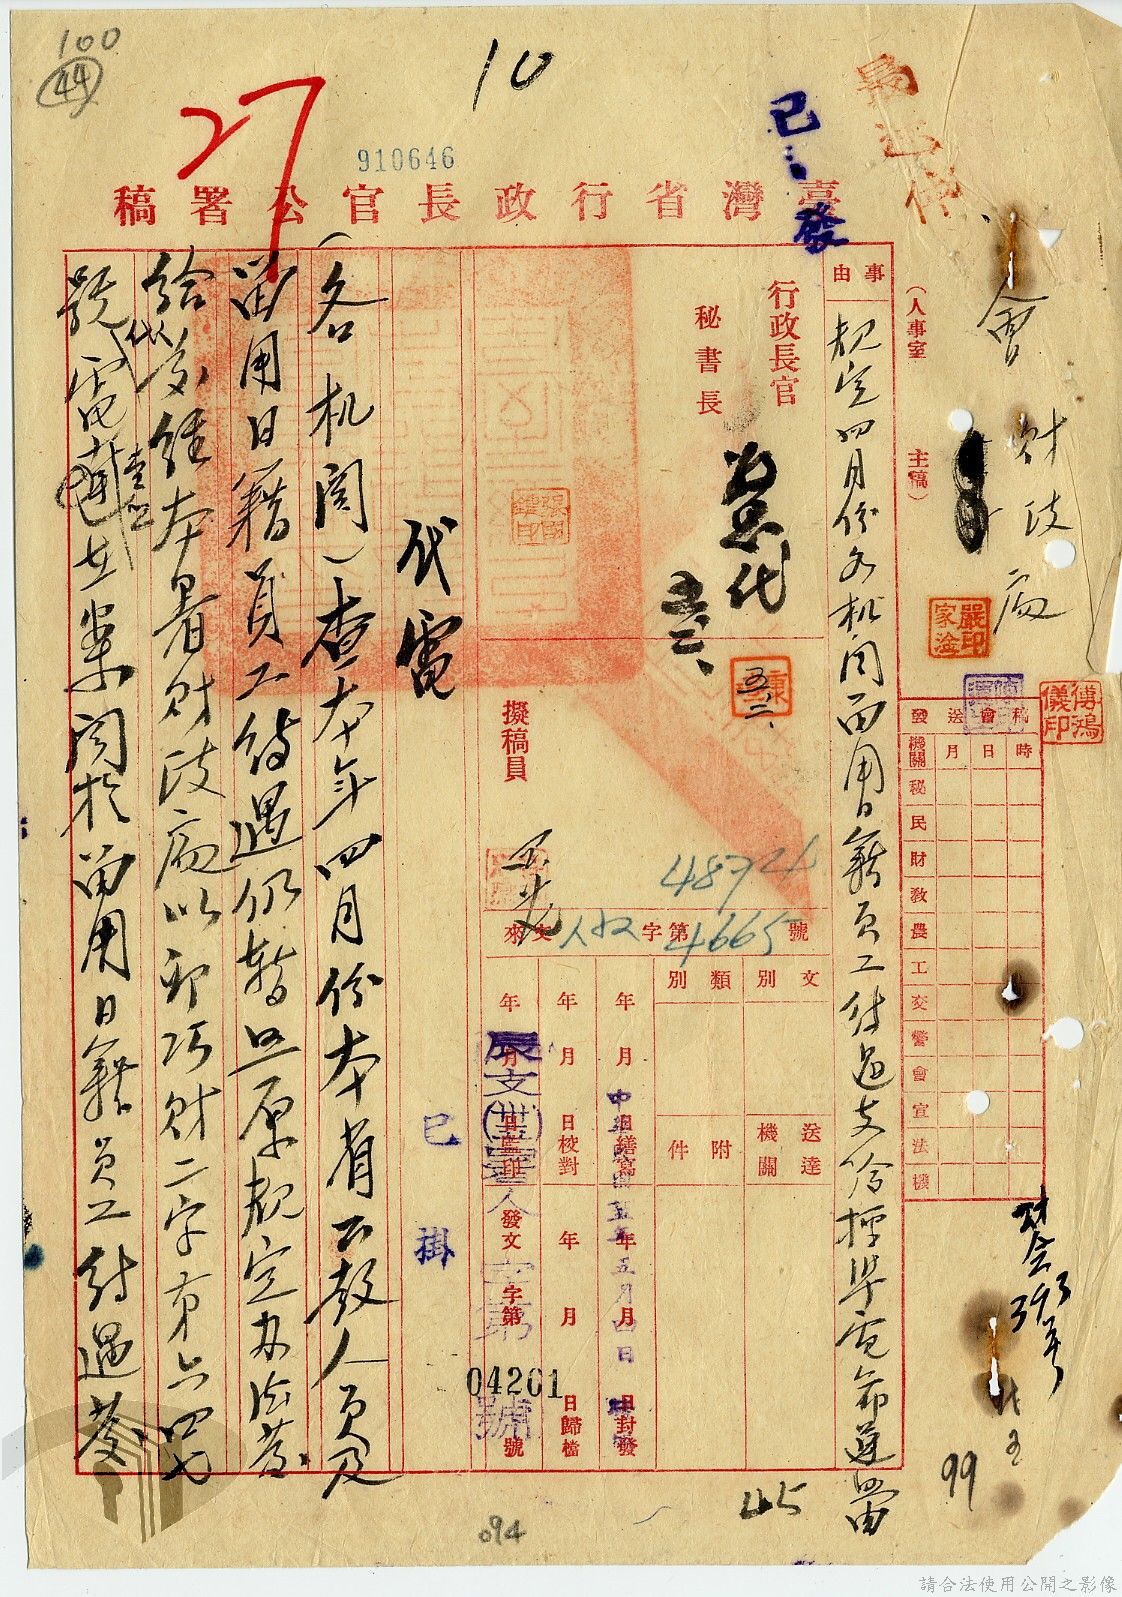 100
44
10
27
910646
已發
臺灣省行政長官公署稿
會 財政處
（人事室 主稿）
事由
規定四月份各机関留用日籍員工待遇支給標準電希遵照由
行政長官
秘書長
嚴家淦印
傅鴻儀印
發送會稿
機關 月 日 時
秘
民
財
教
農
工
交
警
會
宣
法
機
財会393号
99
擬稿員
來文 字第 號
48724
4665
文別
類別
送達機關
附件
年 月 日繕寫
年 月 日校對
年 月 日蓋印
年 月 日封發
年 月 日歸檔
發文 字第 號
中華民國卅五年五月四日
04261
已掛
代電
（各机関）查本年四月份本省公教人員及
留用日籍員工待遇仍暫照原規定办法發
給並經本署財政處以卯巧財二字第六四七
號代電遵照在案関於留用日籍員工待遇茲
45
094
請合法使用公開之影像